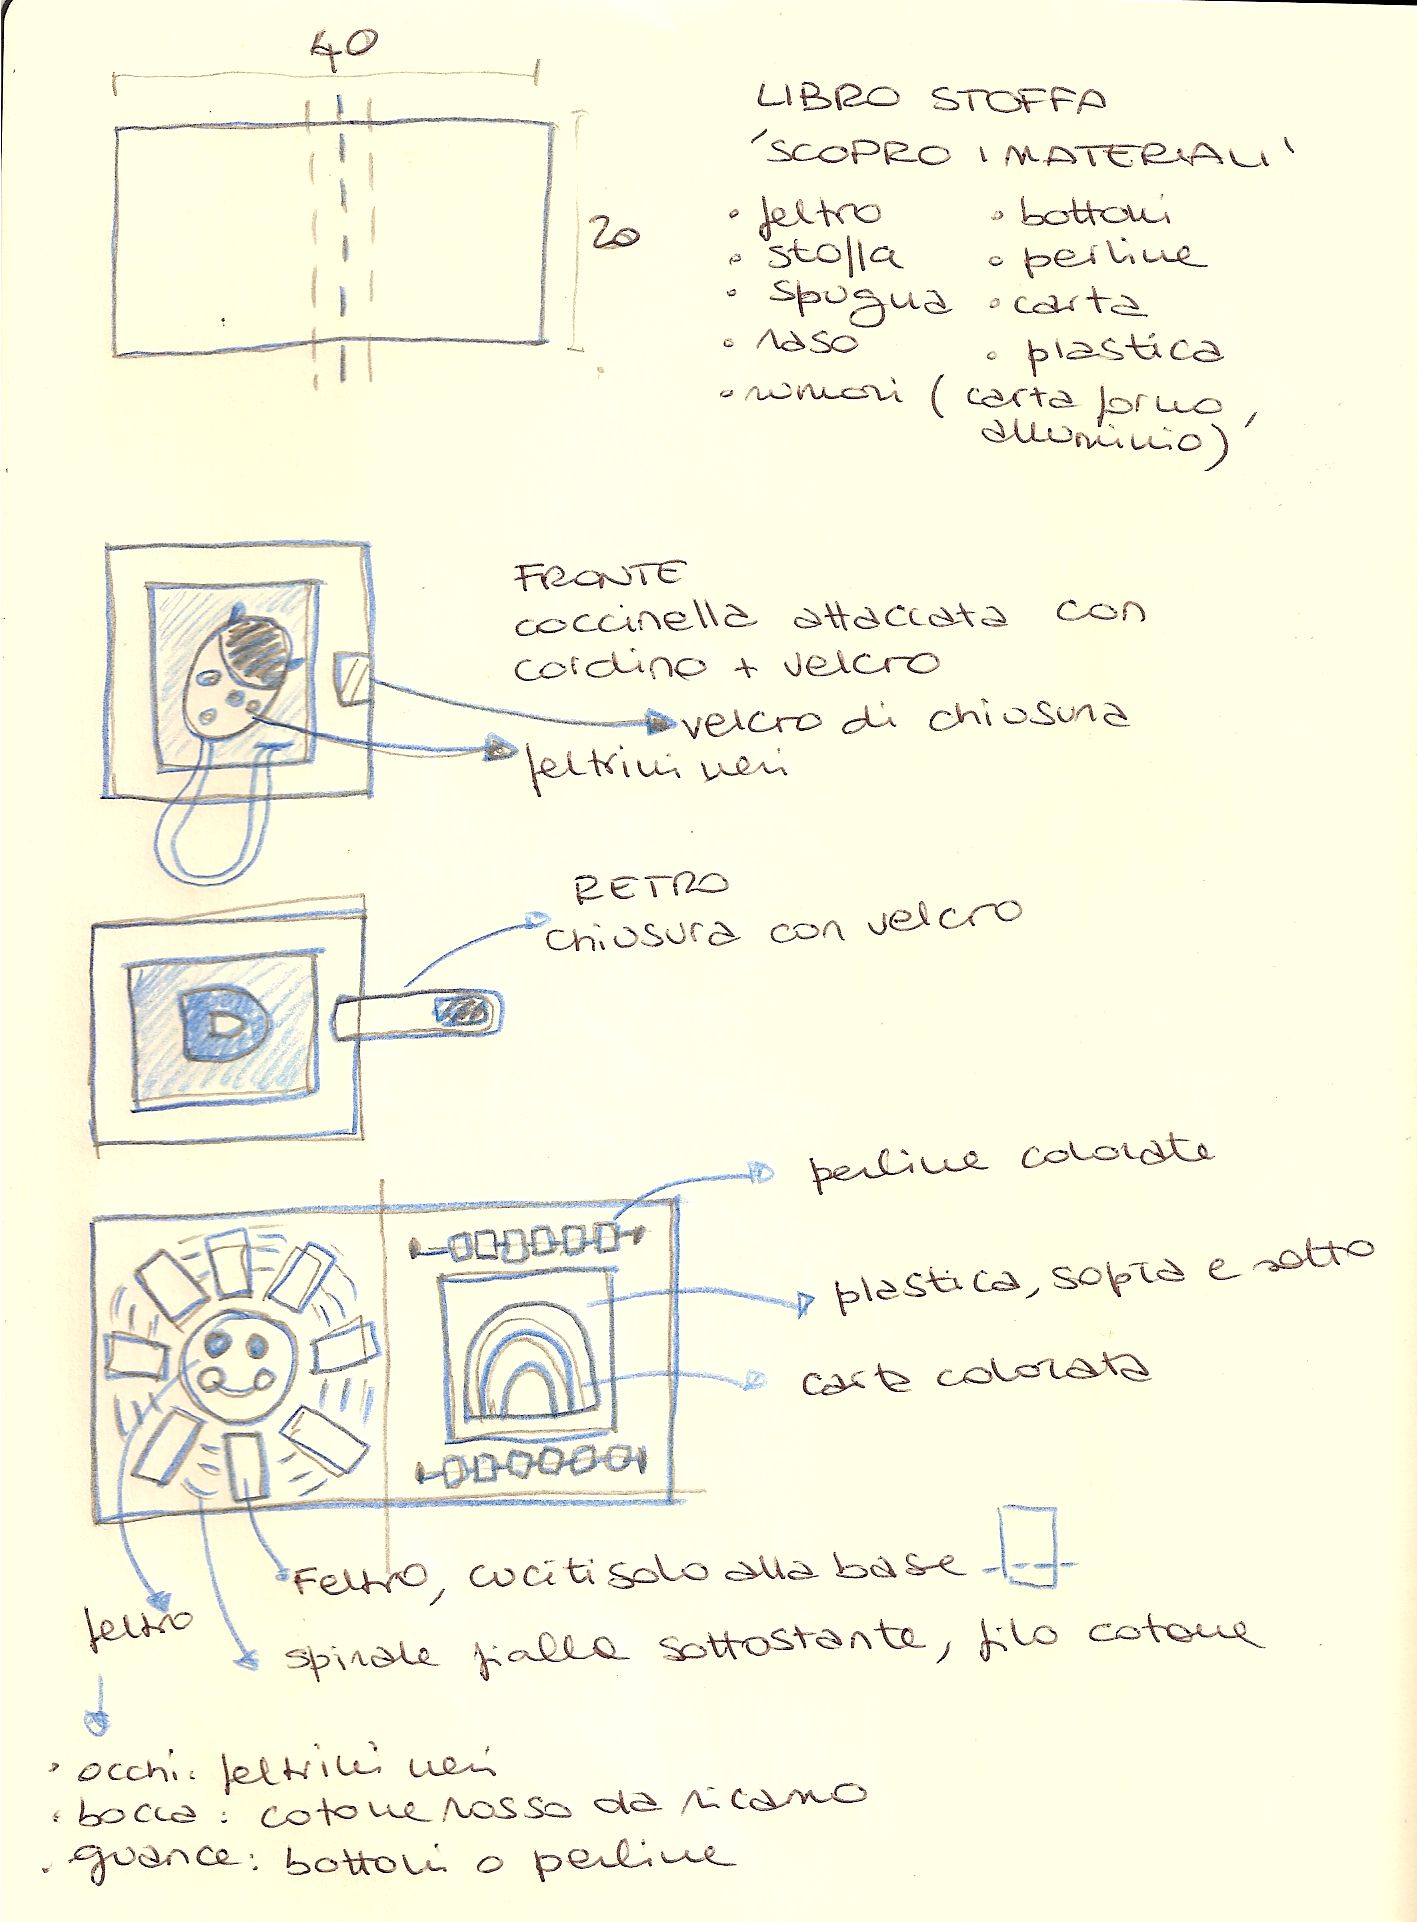 40
20
LIBRO STOFFA
'SCOPRO I MATERIALI'
• feltro
• stoffa
• spugna
• raso
• rumori (carta forno,
alluminio)
• bottoni
• perline
• carta
• plastica
FRONTE
coccinella attaccata con
cordino + velcro
velcro di chiusura
feltrini neri
RETRO
chiusura con velcro
D
perline colorate
plastica, sopra e sotto
carta colorata
Feltro, cuciti solo alla base
feltro
spirale gialla sottostante, filo cotone
• occhi: feltrini neri
• bocca: cotone rosso da ricamo
• guance: bottoni o perline